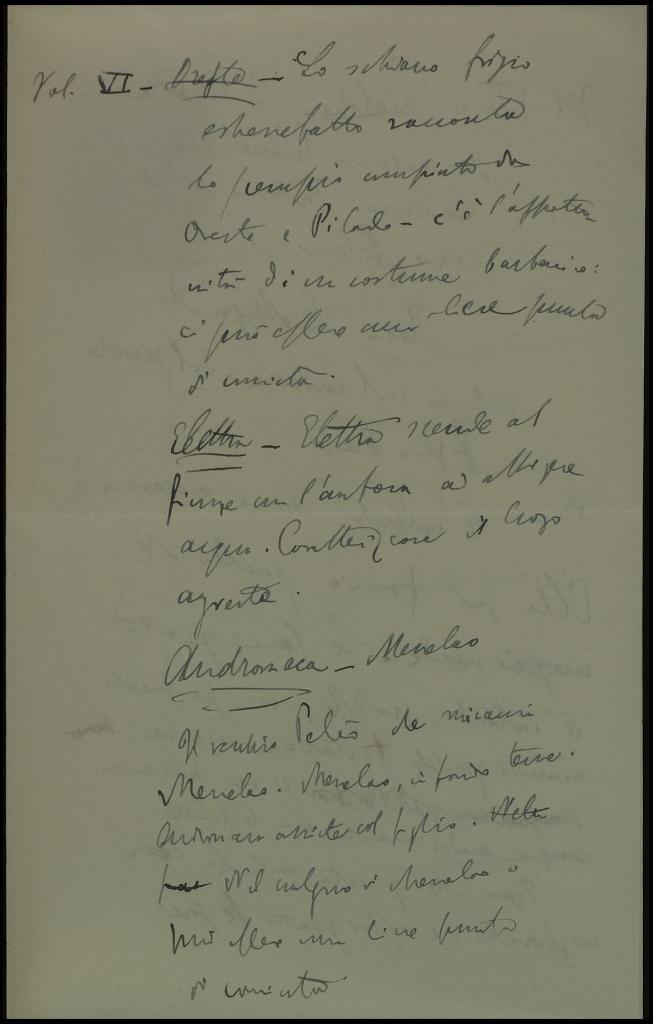 Vol. VI - Oreste - Lo schiavo frigio
esterrefatto racconta
lo scempio compiuto da
Oreste e Pilade - c'è l'aspetta-
di un costume barbarico:
ci può essere una lieve punta
di comicità.
Elettra - Elettra scende al
fiume con l'anfora ad attingere
acqua. Caratterizzare il luogo
agreste.
Andromaca - Menelao
Il vecchio Peleo che minacci
Menelao. Menelao, in fondo teme.
Andromaca assiste col figlio. Nella
Nel contegno di Menelao
può esser una lieve punta
di comicità